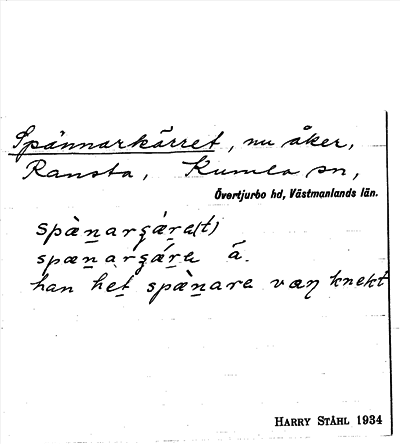 Spännarkärret, nu åker,
Ransta, Kumla sn,
Övertjurbo hd, Västmanlands län.
spæ̀n̠arʂǽr̠a(t)
spæn̠arʂǽr̠a å.
han het̠ spæ̀n̠ara væɳ knekt
HARRY STÅHL 1934